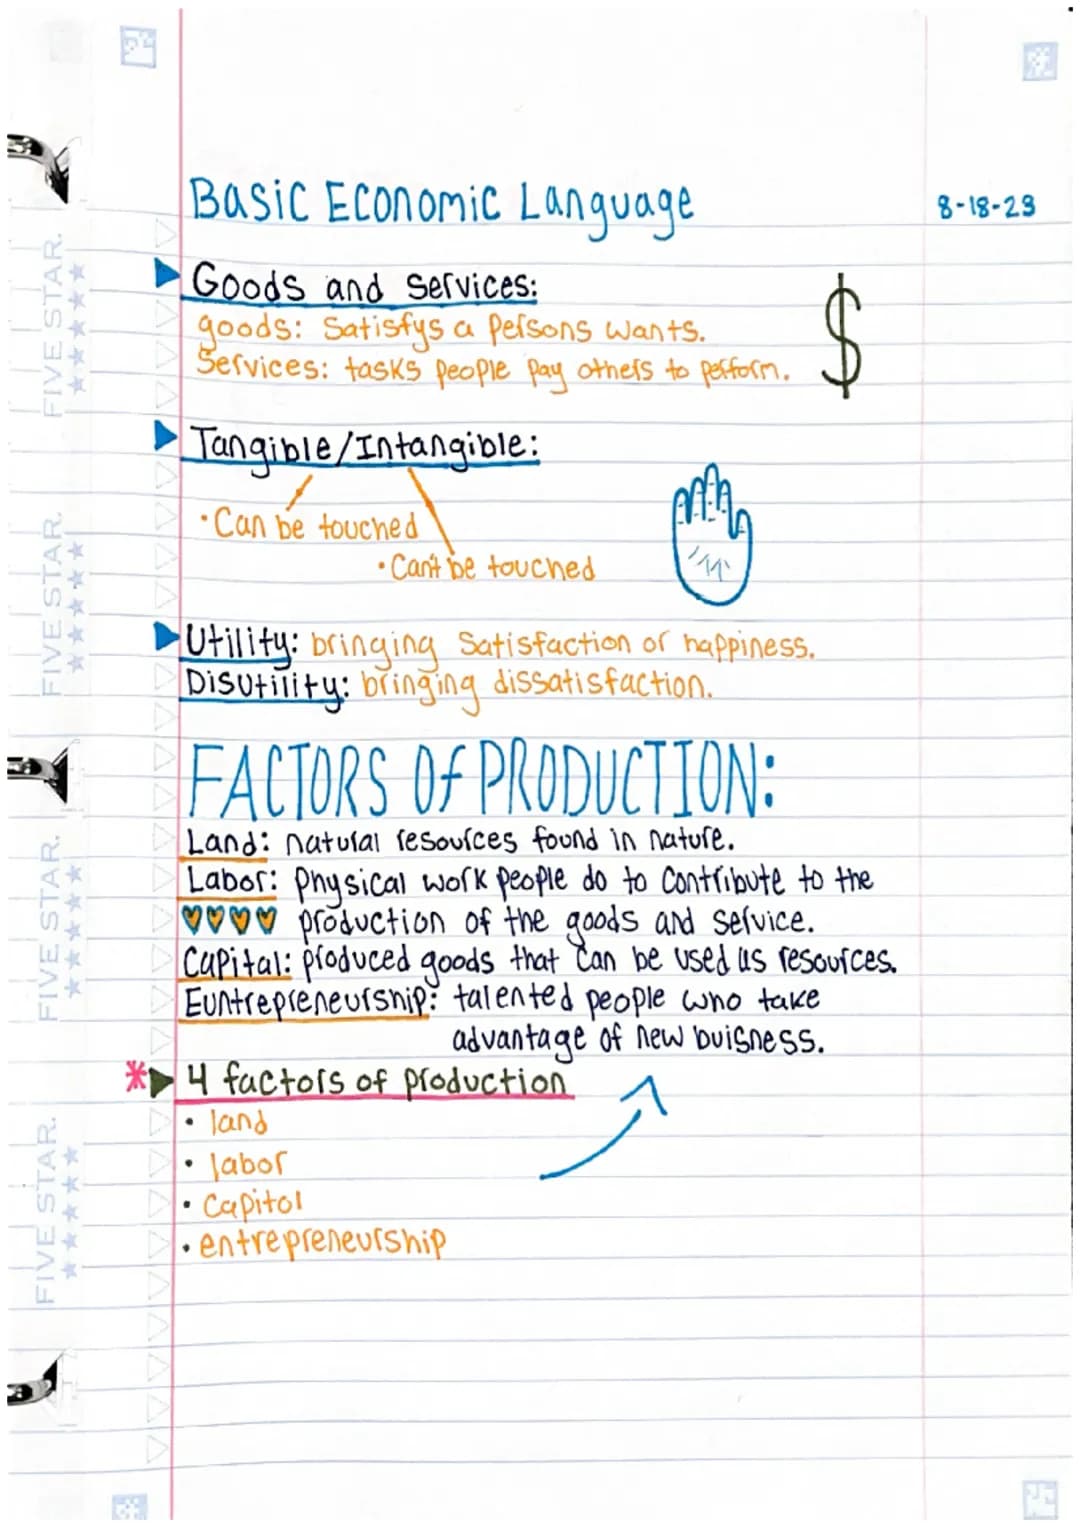 Basic Economic Language
8-18-23
Goods and Services:
goods: Satisfys a Persons wants.
Services: tasks people pay others to perform.
$
Tangible/Intangible:
• Can be touched
• Can't be touched
Utility: bringing Satisfaction or happiness.
Disutility: bringing dissatisfaction.
FACTORS Of PRODUCTION:
Land: natural resources found in nature.
Labor: Physical work people do to Contribute to the
production of the goods and service.
Capital: produced goods that can be used as resources.
Euntrepreneurship: talented people who take
advantage of new buisness.
* 4 factors of production
• land
• labor
• Capitol
• entrepreneurship
FIVE STAR.
FIVE STAR.
FIVE STAR.
FIVE STAR.